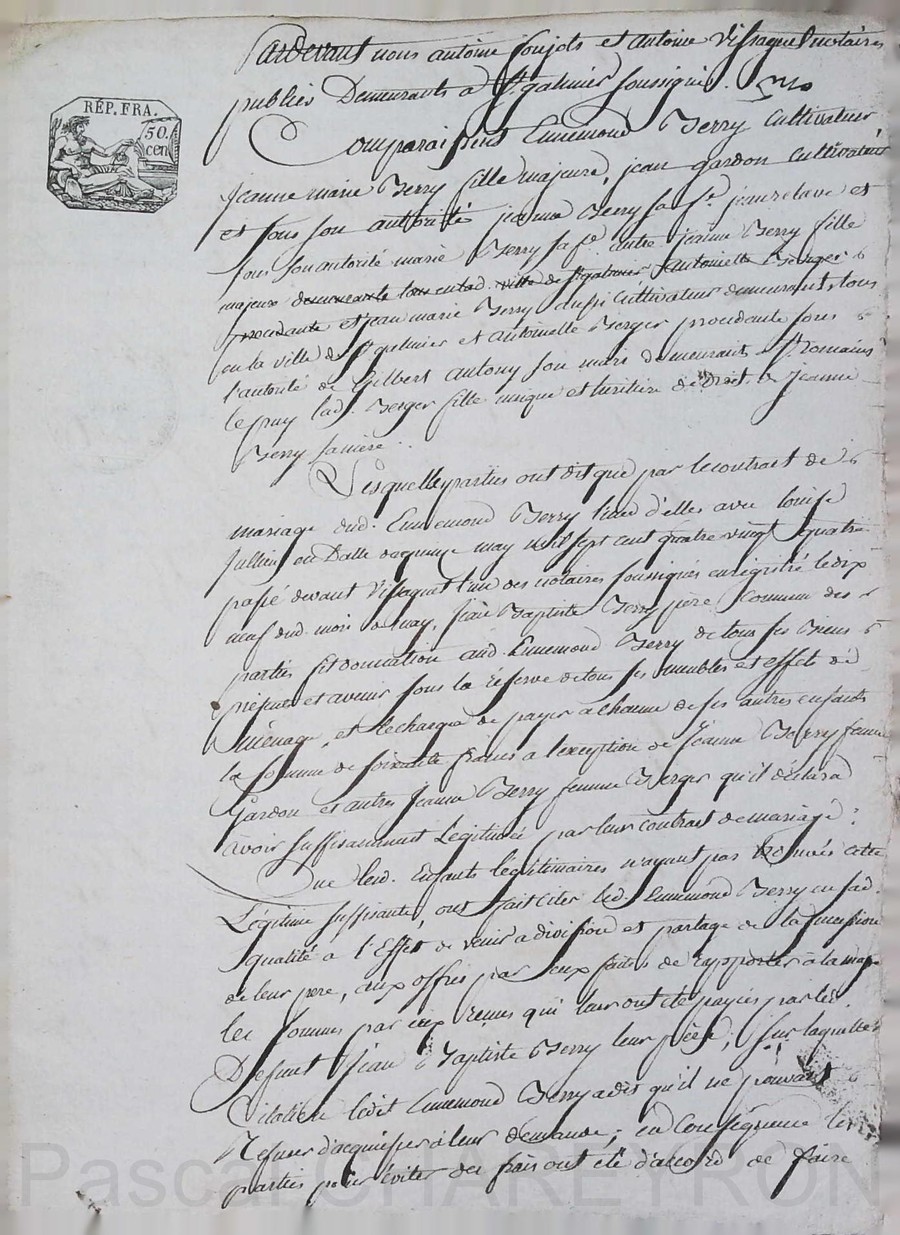 RÉP. FRA.
50.
cen
Pardevant nous antoine soujols et antoine Vissaguet notaires
publics Demeurants a St. galmier soussignés.
Comparaissent Ennemond Berry Cultivateur
Jeanne marie Berry fille majeure, jean gardon cultivateur
et sous son autorité jeanne Berry sa fe. jean relave et
sous son autorité marie Berry sa fe. autre jeanne Berry fille
majeure demeurante tous en lad. ville de St galmier Antoinette Berger
procedante et jean marie Berry aussi Cultivateur demeurants tous
en la ville de St galmier et antoinette Berger procedante sous
l'autorité de Gilbert antony son mari demeurants a St. Romain
le puy lad. Berger fille unique et heritiere de Droit de Jeanne
Berry sa mere.
Lesquelles parties ont dit que par le contrat de
mariage dud. Ennemond Berry l'une d'elles avec louise
Jullien en Datte du quinze may mil sept cent quatre vingt quatre
passé devant Vissaguet l'un des notaires soussignés enregistré le dix
neuf dud. mois de may, Jean Baptiste Berry pere commun des
parties fit donnation aud. Ennemond Berry de tous ses Biens
présents et avenir sous la réserve de tous ses meubles et effets de
menage, et le charge de payer a chacun de ses autres enfants
la somme de soixante francs a l'exception de Jeanne Berry femme
Gardon et autre Jeanne Berry femme Berger qu'il déclara
avoir suffisamment Legitimée par leur contrat de mariage.
Que lesd. Enfants légitimaires n'ayant pas trouvés cette
Légitime suffisante, ont fait citer led. Ennemond Berry en sad.
qualité à l'Effet de venir a division et partage de la succession
de leur pere, aux offres par eux faites de rapporter à la masse
les sommes par eux reçues qui leur ont été payées par le
Defunt Jean Baptiste Berry leur père; sur laquelle
Citation ledit Ennemond Berry a dit qu'il ne pouvait
Refuser d'acquiesser à leur demande; en Conséquence les
parties pour éviter des frais ont été d'accord de faire
Pascal CHAREYRON